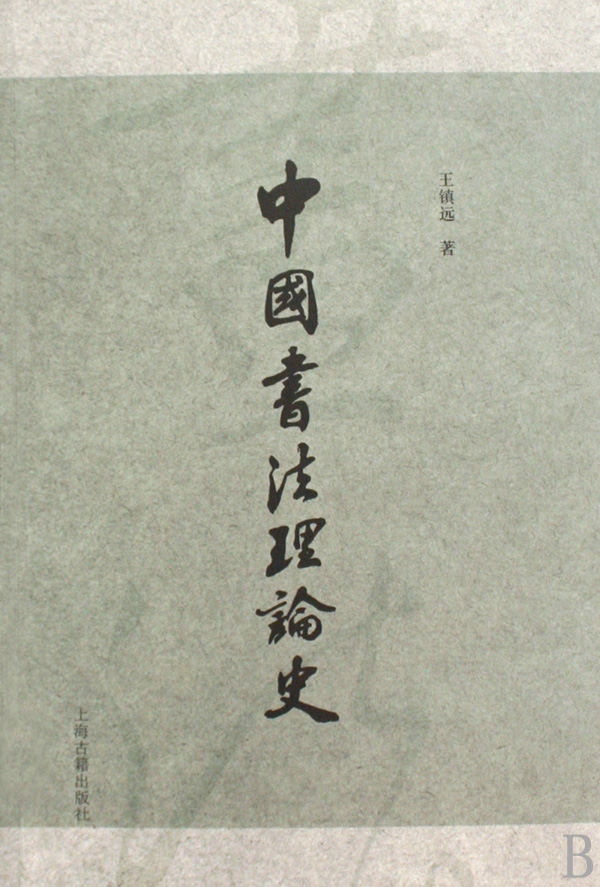 王镇远 著
中國書法理論史
上海古籍出版社
B